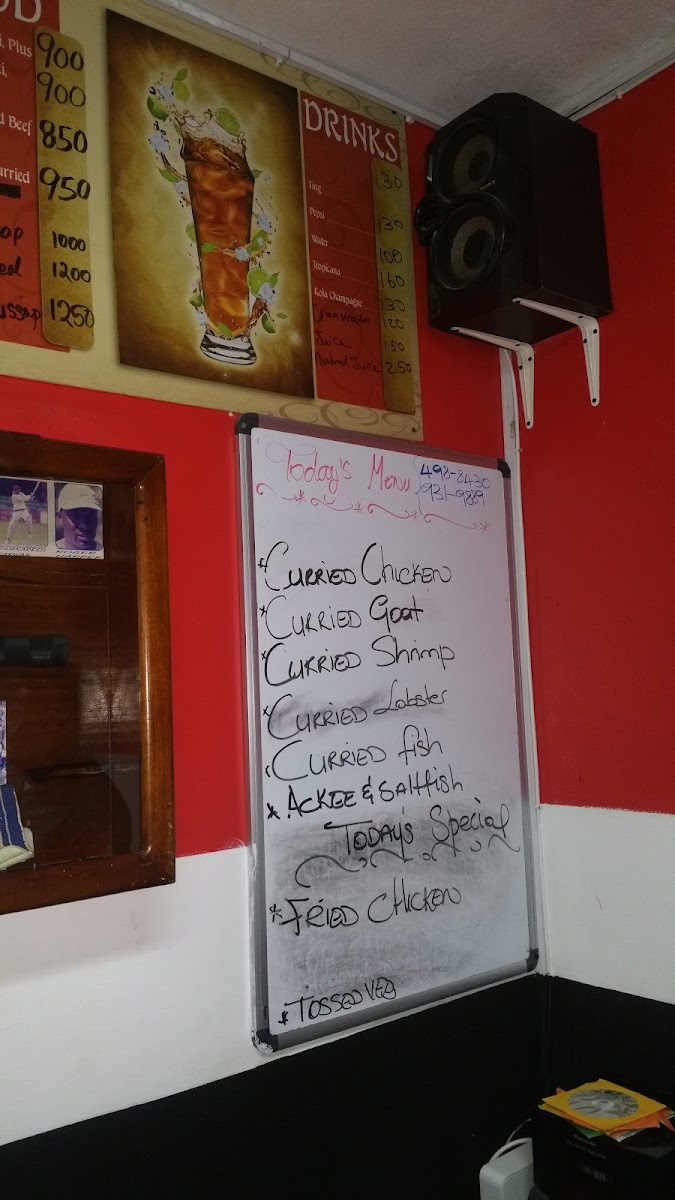 OD
, Plus 900
900
d Beef 850
urried 950
1000
1200
1250
DRINKS
Ting 130
Pepsi 130
Water 100
Tropicana 160
Kola Champagne 130
120
Juice 150
Natural Juice 250
Today's Menu 498-8430
931-9889
* CURRIED CHICKEN
* CURRIED Goat
* CURRIED Shrimp
* CURRIED Lobster
CURRIED fish
* ACKEE & SAltfish
TODAY'S Special
* FRIED CHICKEN
* TOSSED VEG